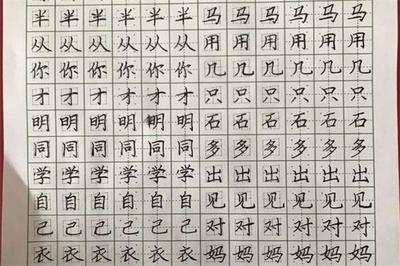 半半半半半半马马马马马马
从从从从从从用用用用用用
你你你你你你几几几几几几
才才才才才才只只只只只只
明明明明明明石石石石石石
同同同同同同多多多多多多
学学学学学学出出出出出出
自自自自自自见见见见见见
己己己己己己对对对对对对
衣衣衣衣衣衣妈妈妈妈妈妈